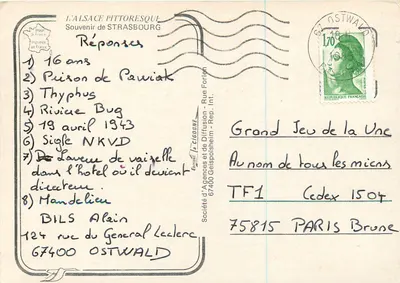 L'ALSACE PITTORESQUE
Souvenir de STRASBOURG
Réponses
1) 16 ans
2) Prison de Pawiak
3) Thyphus
4) Rivière Bug
5) 19 avril 1943
6) Sigle NKVD
7) Laveur de vaisselle
dans l'hotel où il devient
directeur.
8) Mandelieu
BILS Alain
124 rue du General Leclerc
67400 OSTWALD
Société d'Agences et de Diffusion - Rue Forlen
67400 Geispolsheim - Rep. Int.
67 OSTWALD
1,70
Grand Jeu de la Une
Au nom de tous les miens
TF1 Cedex 1504
75815 PARIS Brune